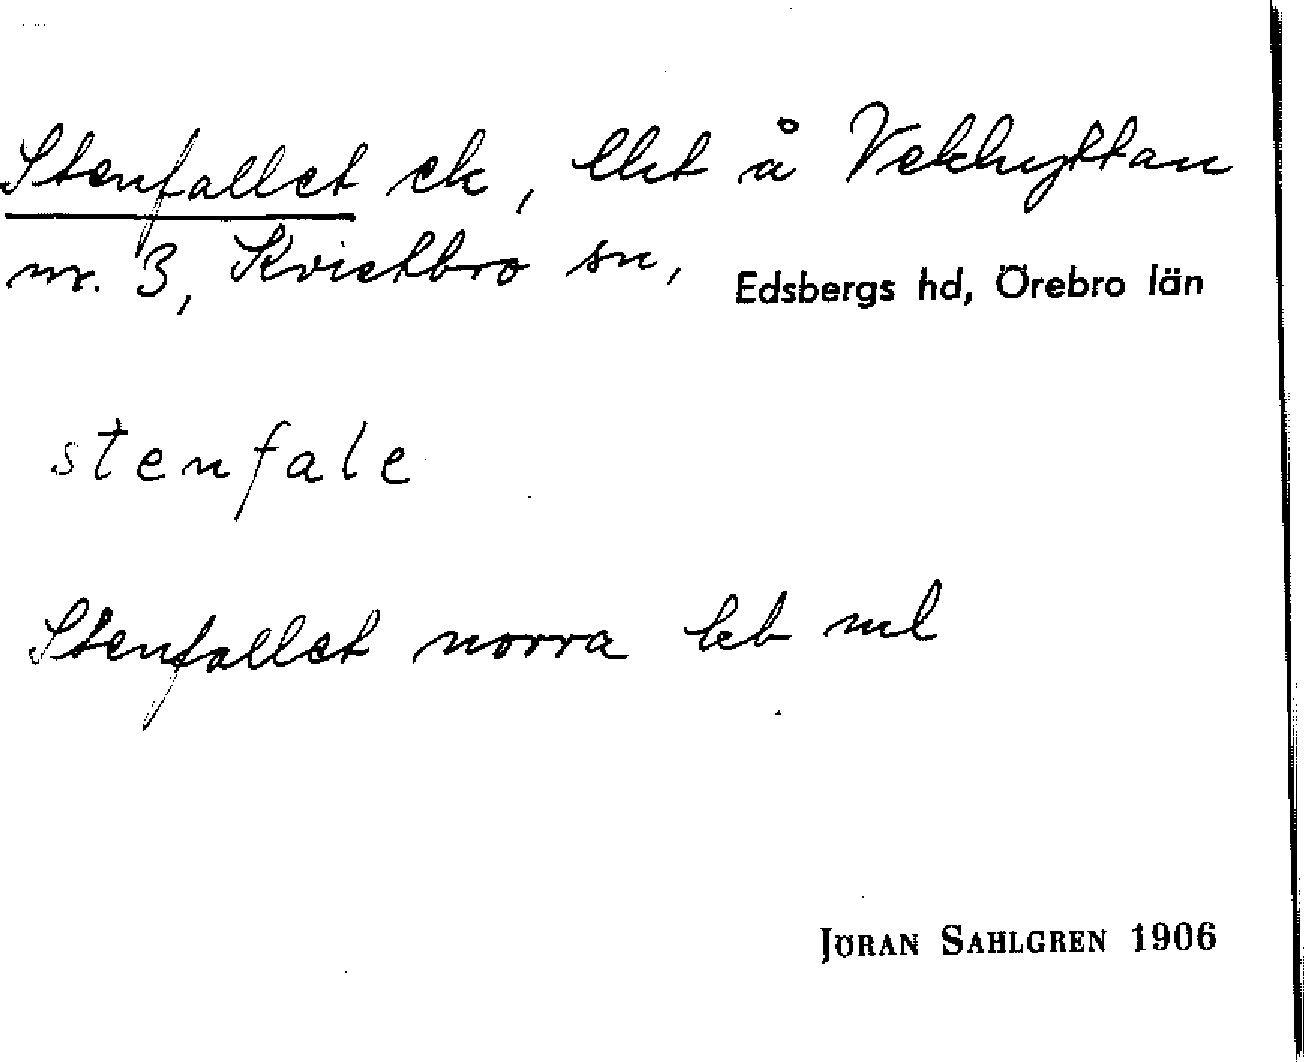 Stenfallet ck, lht å Vekhyttan
nr. 3, Kvistbro sn, Edsbergs hd, Örebro län
stenfale
Stenfallet norra leb ml
JÖRAN SAHLGREN 1906